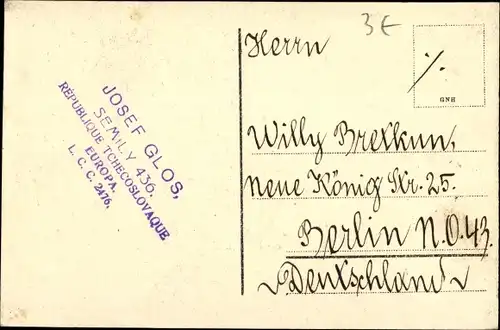 JOSEF GLOS,
SEMILY 436.
RÉPUBLIQUE TCHECOSLOVAQUE
EUROPA.
L. C. C. 2476.
3€
Herrn
·/.
GNB
Willy Bretkun,
Neue König Str. 25.
Berlin N.O.43
Deutschland